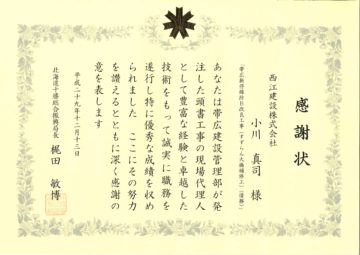 感謝状
西江建設株式会社
小川 真司 様
あなたは帯広建設管理部が発
注した頭書工事の現場代理人
として豊富な経験と卓越した
技術をもって誠実に職務を
遂行し特に優秀な成績を収め
られました ここにその努力
を讃えるとともに深く感謝の
意を表します
平成二十九年十二月十三日
北海道十勝総合振興局長 梶田 敏博